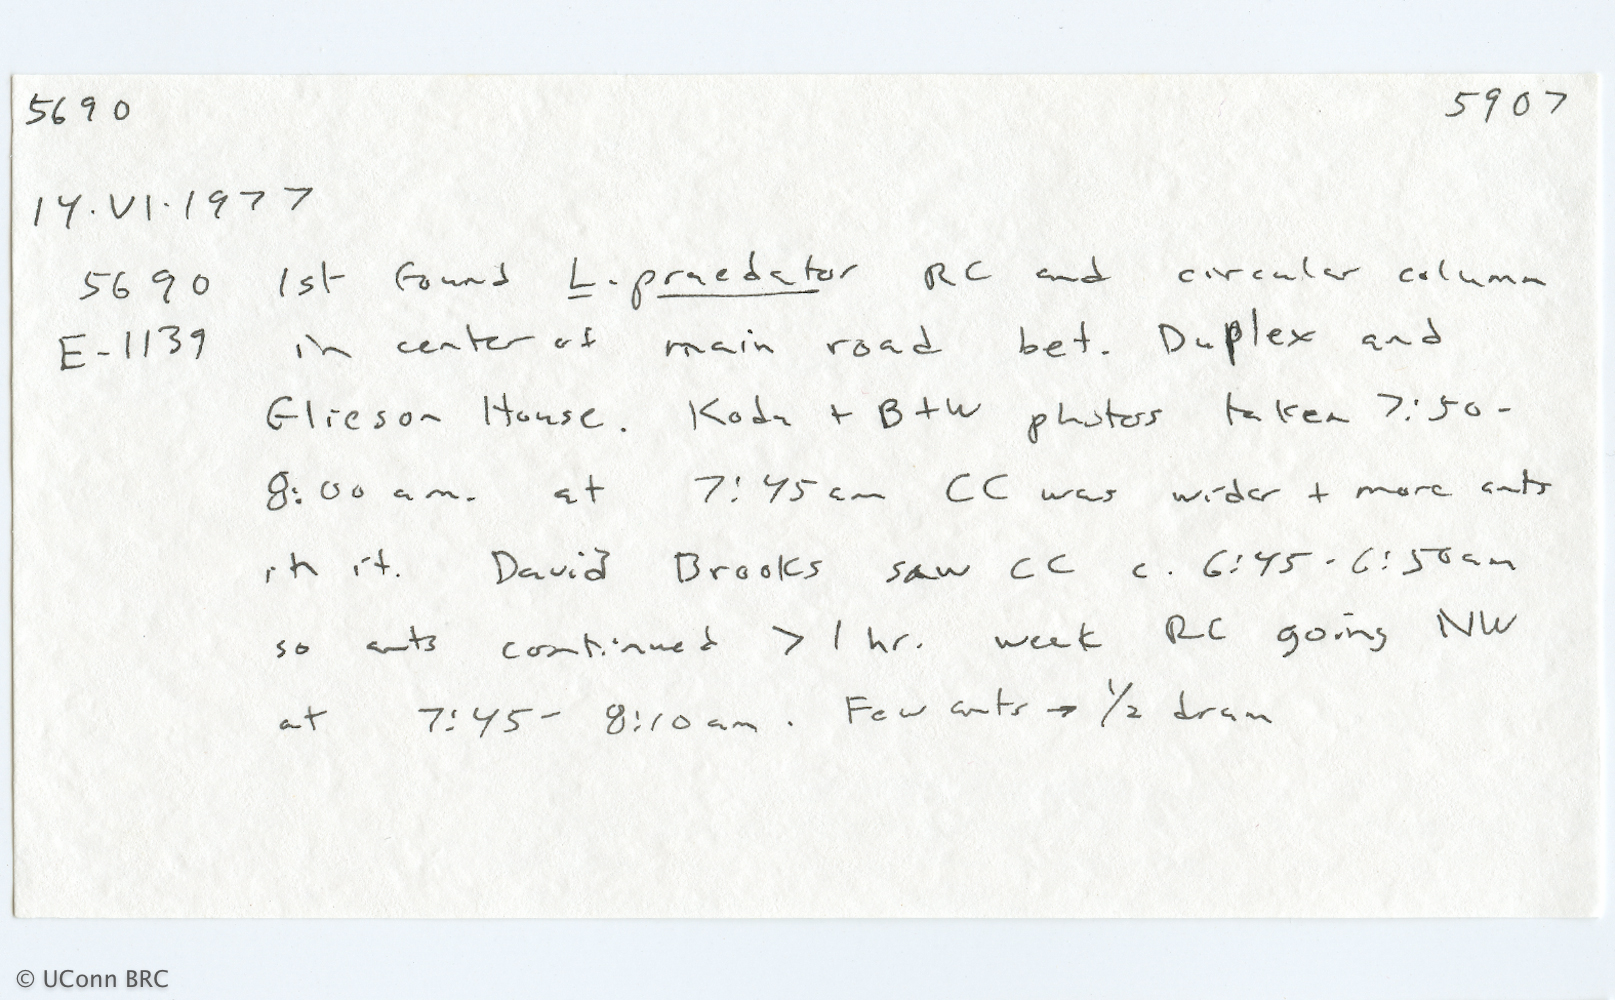 5690 5907
14.VI.1977
5690 1st found L. praedator RC and circular column
E-1139 in center of main road bet. Duplex and
Glieson House. Koda + B+W photos taken 7:50-
8:00 am. at 7:45 am CC was wider + more ants
in it. David Brooks saw CC c. 6:45-6:50am
so ants continued > 1 hr. weak RC going NW
at 7:45- 8:10 am. Few ants → 1/2 dram
© UConn BRC